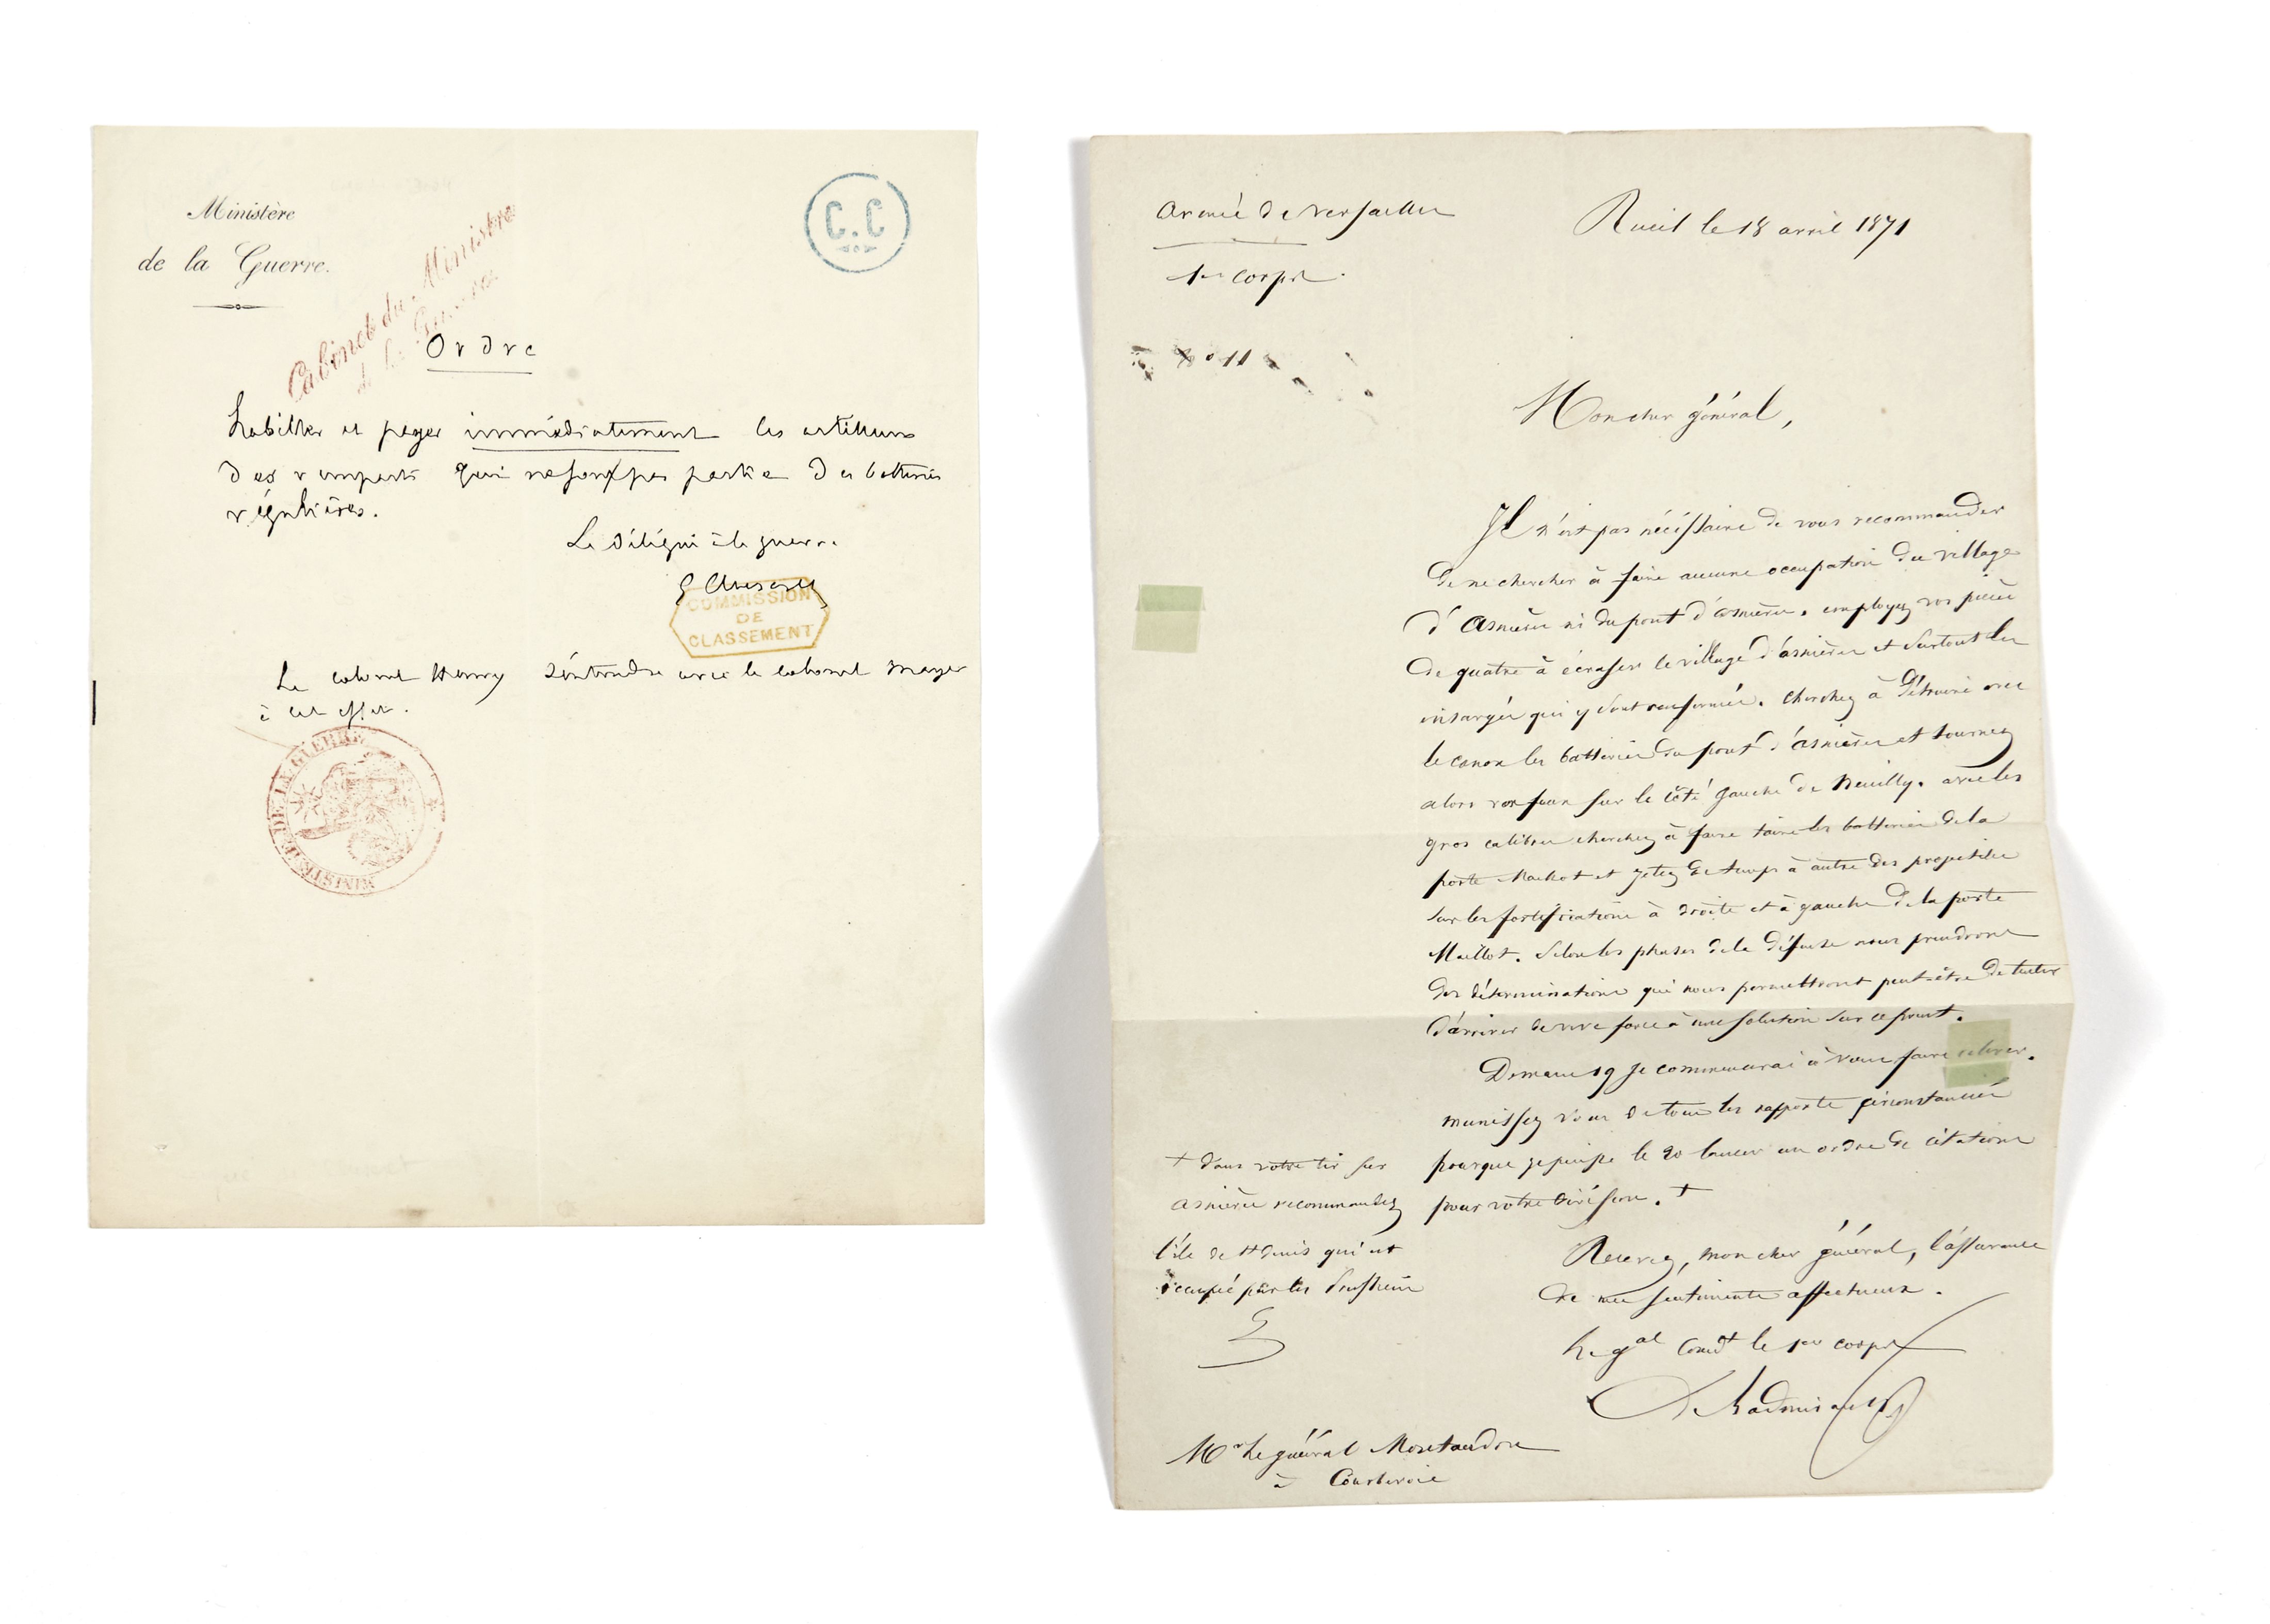 Ministère
de la Guerre.
Cabinet du Ministre
de la Guerre
C.C
Ordre
habiller et payer immédiatement les artilleurs
des remparts qui ne font pas partie des batteries
régulières.
Le Délégué à la guerre
G Cluseret
COMMISSION
DE
CLASSEMENT
Le colonel Henry s'entendra avec le colonel Mayer
à cet effet.
MINISTÈRE DE LA GUERRE
armée de Versailles
1er corps
No 11
Rueil le 18 avril 1871
Mon cher général,
Il n'est pas nécessaire de vous recommander
de ne chercher à faire aucune occupation du village
d'Asnières ni du pont d'asnières. employez vos pièces
de quatre à écraser le village d'asnières et surtout les
insurgés qui y sont renfermés. Cherchez à détruire avec
le canon les batteries du pont d'asnières et tournez
alors vos feux sur le côté gauche de Neuilly. avec les
gros calibres cherchez à faire taire les batteries de la
porte Maillot et jetez de temps à autre des projectiles
sur les fortifications à droite et à gauche de la porte
Maillot. Selon les phases de la défense nous prendrons
des déterminations qui nous permettront peut-être de tenter
d'arriver de vive force à une solution sur ce point.
Demain 19 je commencerai à vous faire relever.
munissez vous de tous les rapports circonstanciés
pour que je puisse le 20 lancer un ordre de citations
pour votre division. +
+ dans votre tir sur
asnières recommandez
l'île de St Denis qui est
occupée par les Prussiens
Recevez, mon cher général, l'assurance
de mes sentiments affectueux.
Le gal Comdt le 1er corps
De Ladmirault
Mr le général Montaudon
à Courbevoie